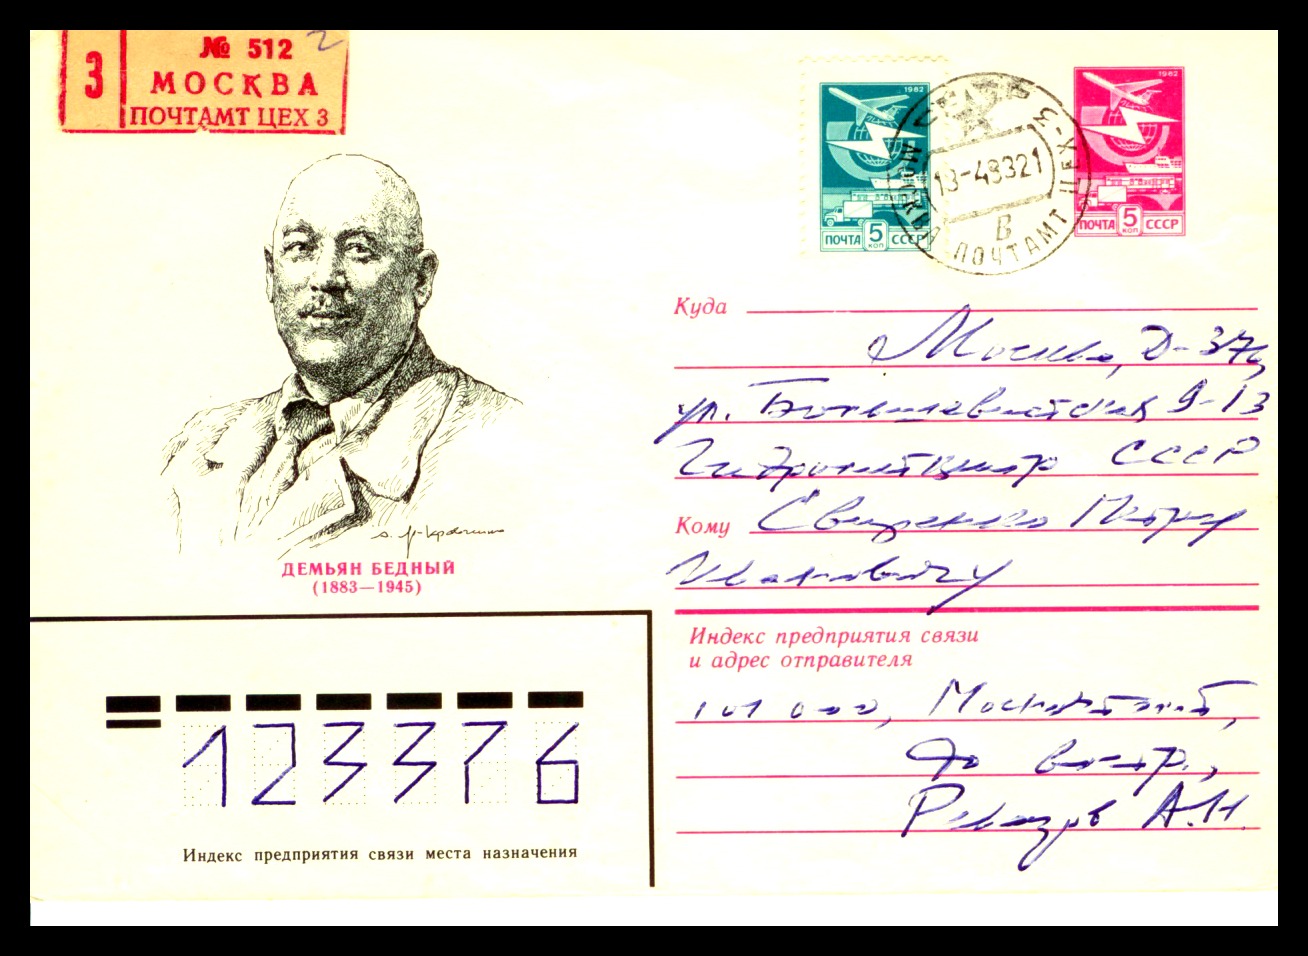 З
№ 512
МОСКВА
ПОЧТАМТ ЦЕХ 3
1982
ПОЧТА 5 КОП СССР
МОСКВА ПОЧТАМТ ЦЕХ-3
В
1982
ПОЧТА 5 КОП СССР
ДЕМЬЯН БЕДНЫЙ
(1883—1945)
Куда
Москва, Д-376
ул. Большевистская 9-13
Гидрометцентр СССР
Кому Свиренко Петру
Ивановичу
Индекс предприятия связи
и адрес отправителя
101 000, Москва
до востр.,
А.Н.
123376
Индекс предприятия связи места назначения